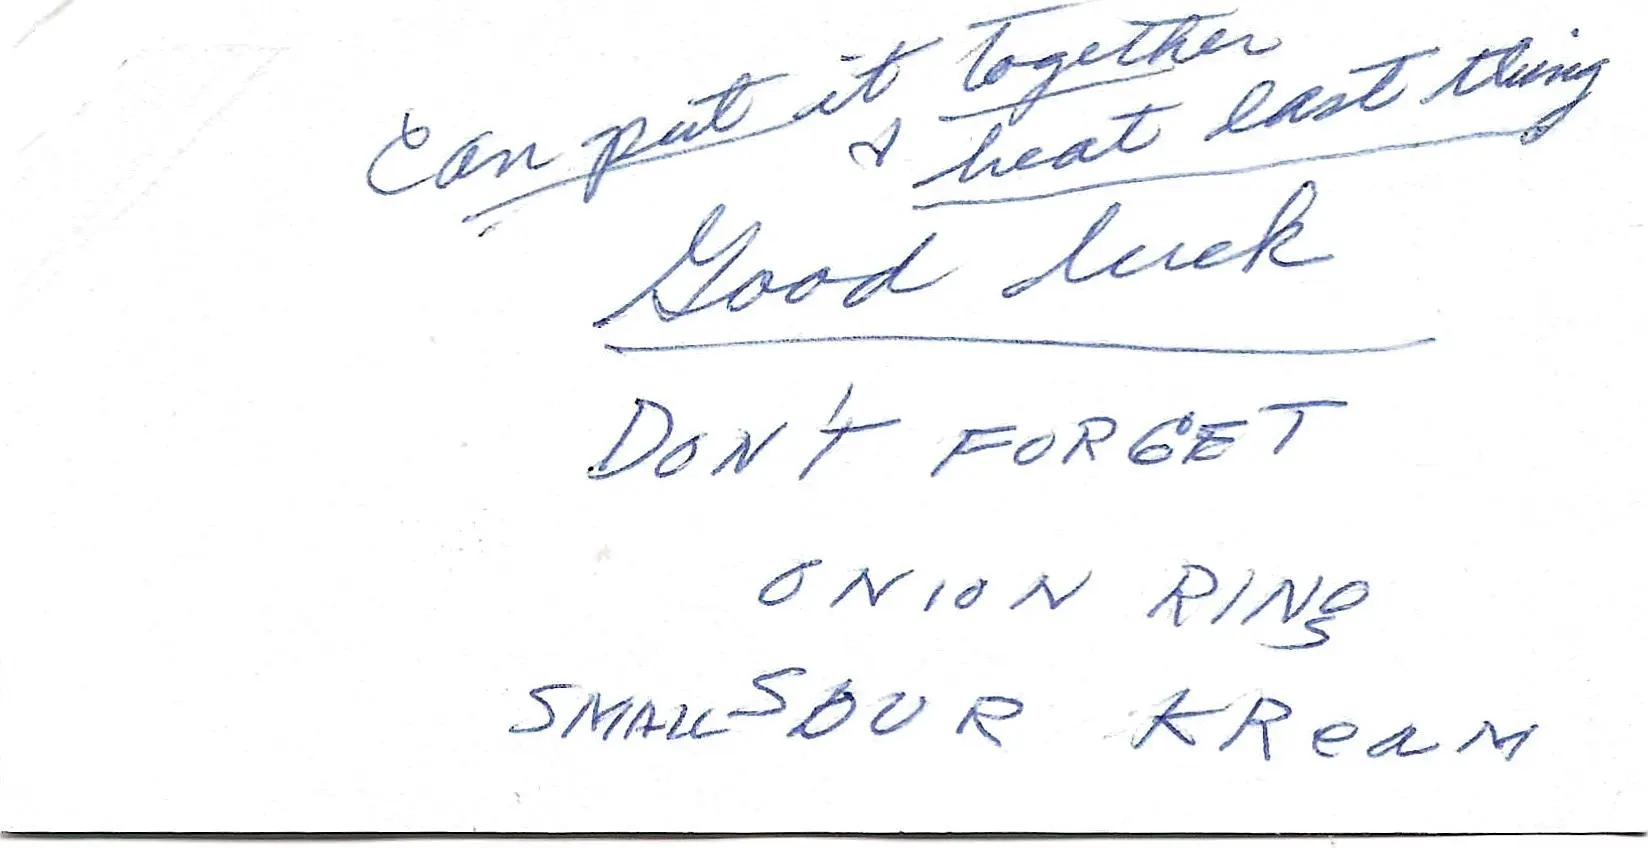 Can put it together
& heat last thing
Good luck
DON'T FORGET
ONION RINGS
SMALL SOUR KReaM